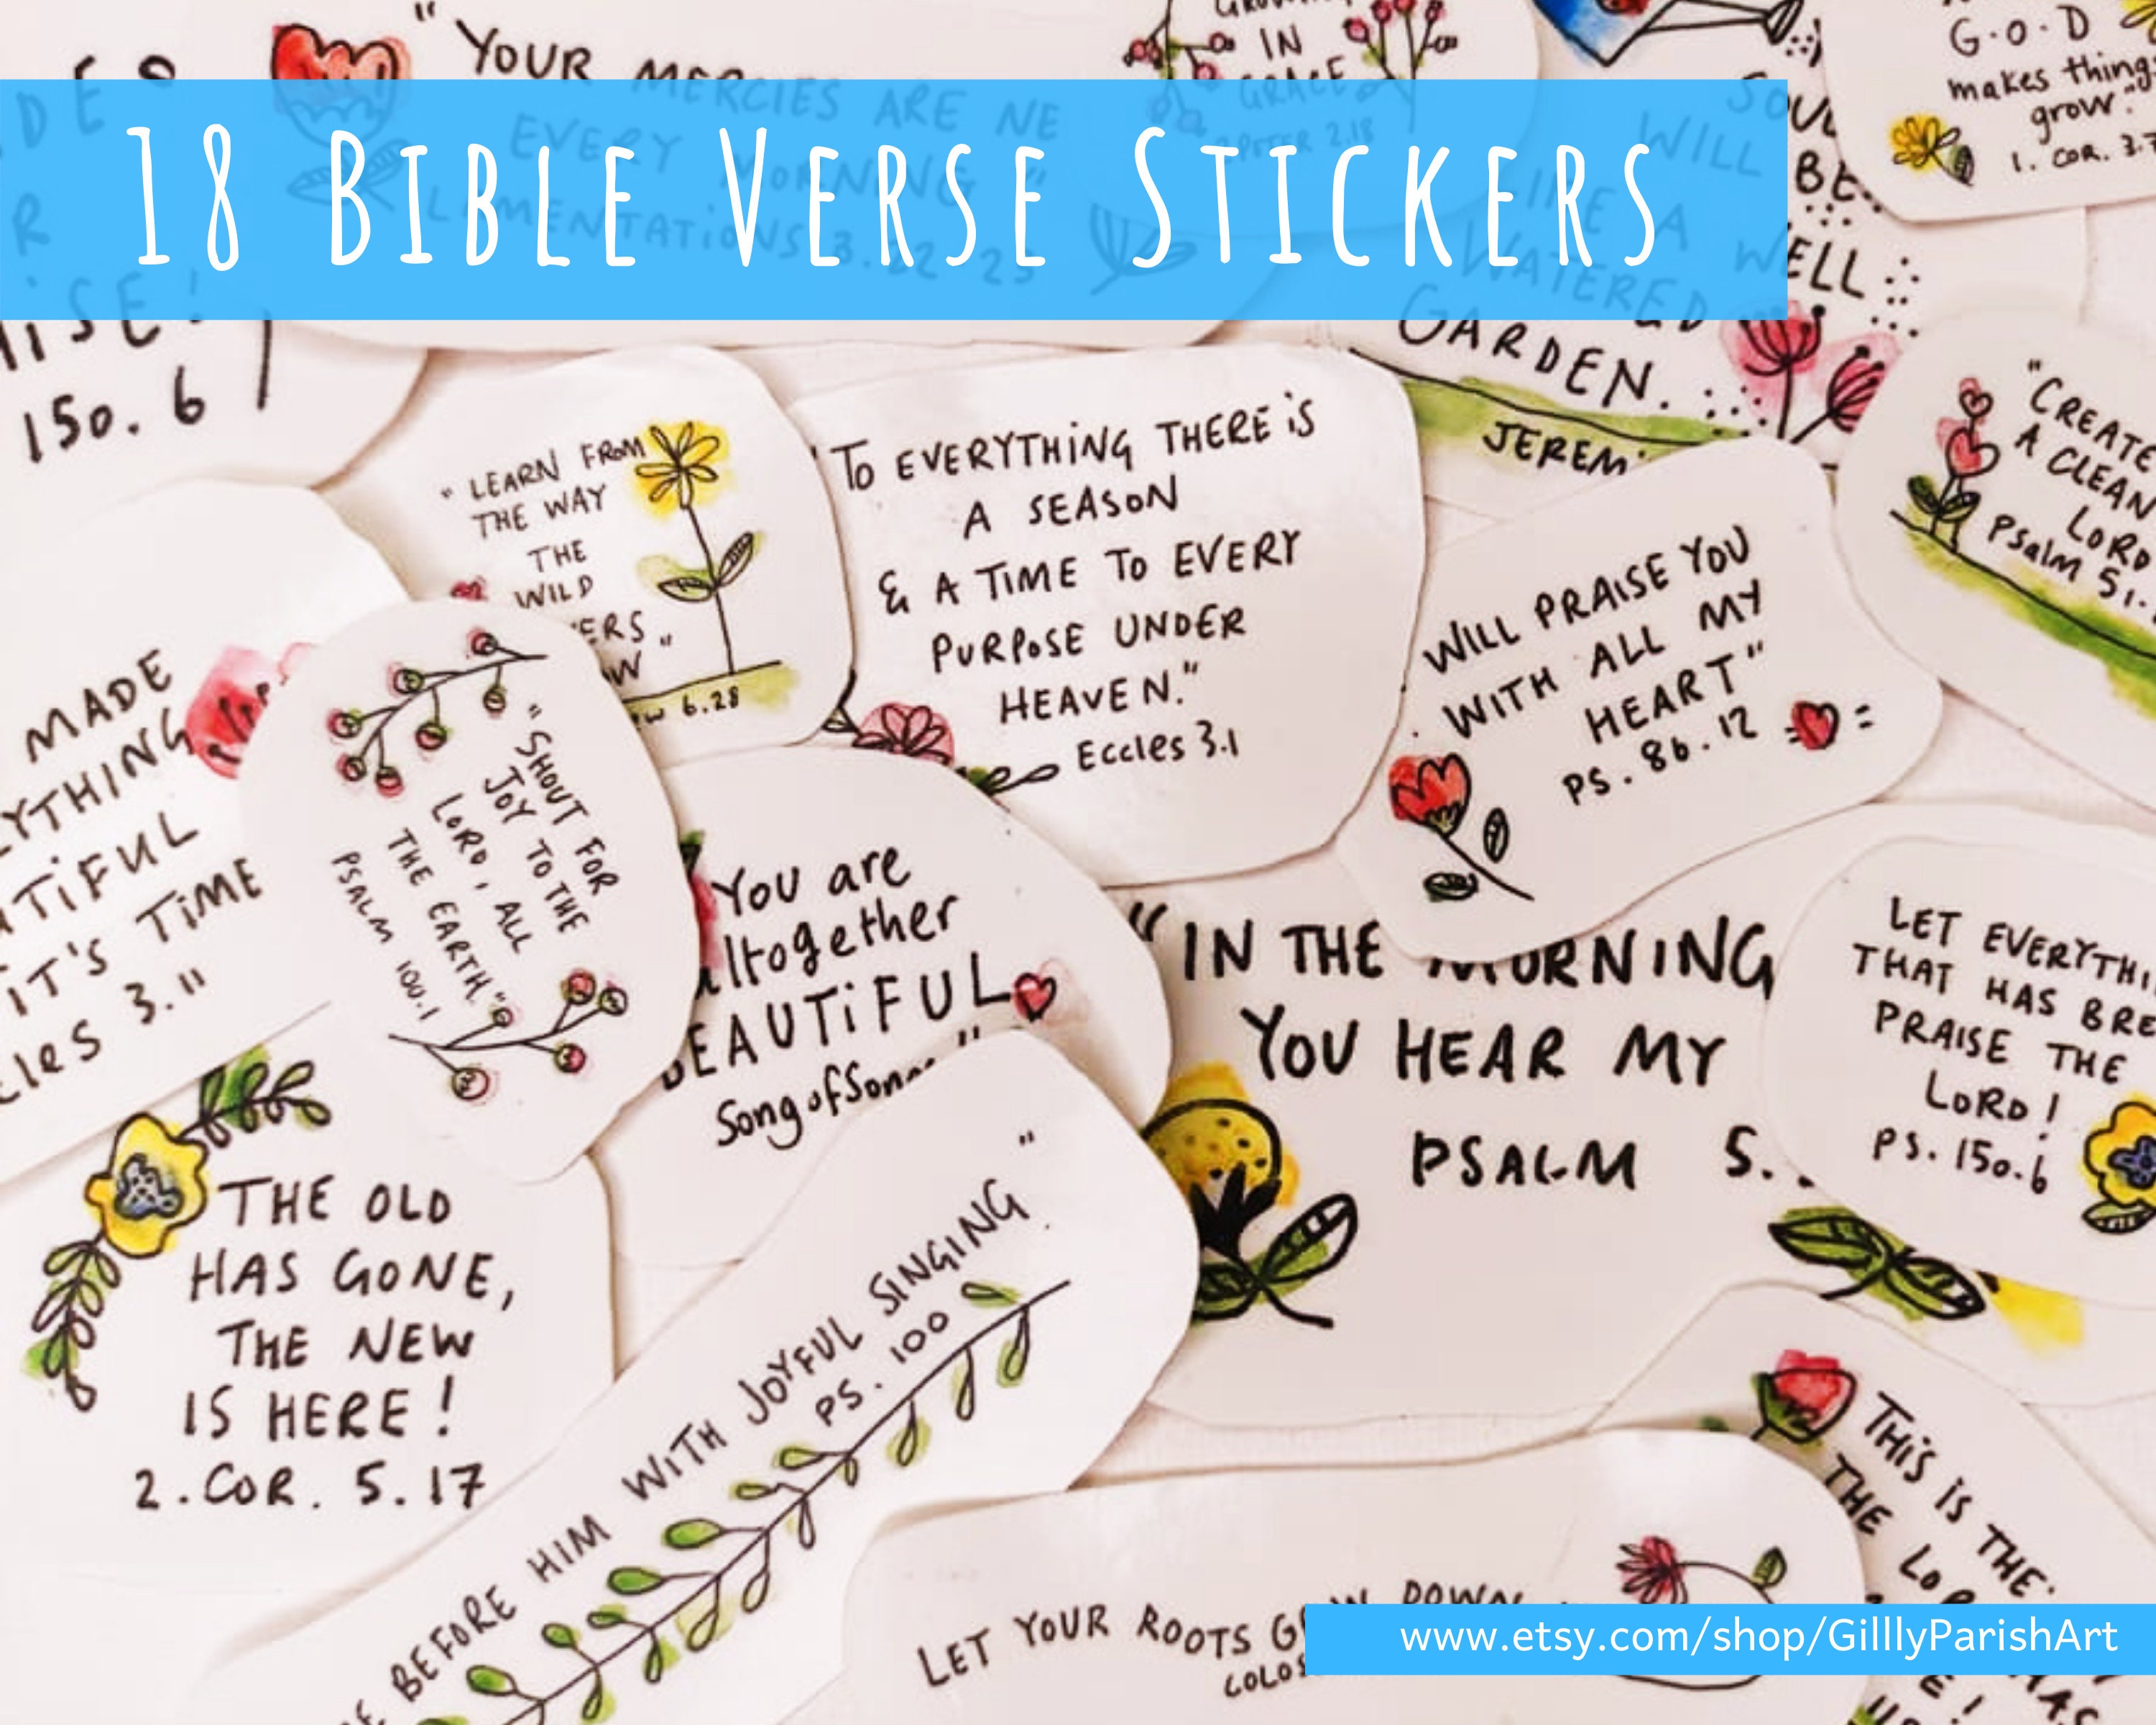 18 BIBLE VERSE STICKERS
"YOUR MERCIES ARE NE
EVERY MORNING"
LAMENTATIONS 3.22-23
IN
GRACE
2.18
G.O.D
makes things
grow."
1. COR. 3.7
SOUL
WILL BE
LIKE A WELL
WATERED
GARDEN.
JEREM
150.6
"LEARN FROM
THE WAY
THE
WILD
6.28
"TO EVERYTHING THERE IS
A SEASON
& A TIME TO EVERY
PURPOSE UNDER
HEAVEN."
Eccles 3.1
WILL PRAISE YOU
WITH ALL MY
HEART"
PS. 86.12
"CREATE
A CLEAN
LORD
Psalm 51.
MADE
YTHING
TIFUL
IT'S TIME
cles 3.11
"SHOUT FOR
JOY TO THE
LORD, ALL
THE EARTH."
PSALM 100.1
You are
altogether
BEAUTIFUL
Song of Songs
"IN THE MORNING
YOU HEAR MY
PSALM 5.
LET EVERYTHI
THAT HAS BRE
PRAISE THE
LORD!
PS. 150.6
THE OLD
HAS GONE,
THE NEW
IS HERE!
2.COR. 5.17
BEFORE HIM WITH JOYFUL SINGING"
PS. 100
LET YOUR ROOTS GROW DOWN
COLOS
THIS IS THE
THE LOR
www.etsy.com/shop/GilllyParishArt